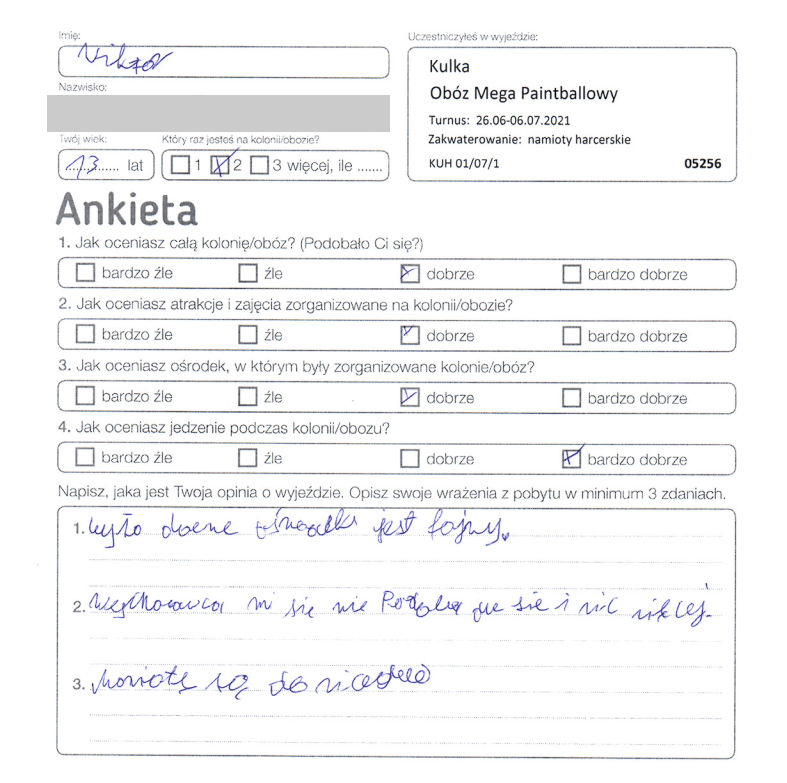 Imię:
Wiktor
Nazwisko:
Twój wiek:
13 lat
Który raz jesteś na kolonii/obozie?
1 2 3 więcej, ile .......
Uczestniczyłeś w wyjeździe:
Kulka
Obóz Mega Paintballowy
Turnus: 26.06-06.07.2021
Zakwaterowanie: namioty harcerskie
KUH 01/07/1 05256
Ankieta
1. Jak oceniasz całą kolonię/obóz? (Podobało Ci się?)
bardzo źle źle dobrze bardzo dobrze
2. Jak oceniasz atrakcje i zajęcia zorganizowane na kolonii/obozie?
bardzo źle źle dobrze bardzo dobrze
3. Jak oceniasz ośrodek, w którym były zorganizowane kolonie/obóz?
bardzo źle źle dobrze bardzo dobrze
4. Jak oceniasz jedzenie podczas kolonii/obozu?
bardzo źle źle dobrze bardzo dobrze
Napisz, jaka jest Twoja opinia o wyjeździe. Opisz swoje wrażenia z pobytu w minimum 3 zdaniach.
1. było jest fajny.
2. mi się nie się i nic
3. są do